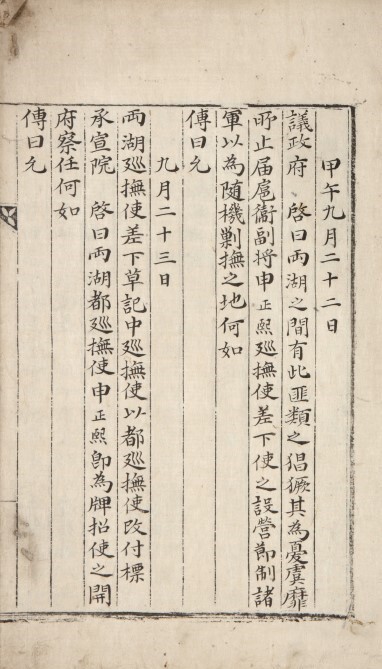 甲午九月二十二日
議政府 啓曰兩湖之間有此匪類之猖獗其爲憂虞靡
所止届扈衛副將申正熙廵撫使差下使之設營節制諸
軍以爲随機剿撫之地何如
傳曰允
九月二十三日
兩湖廵撫使差下草記中廵撫使以都廵撫使改付標
承宣院 啓曰兩湖都廵撫使申正熙卽爲牌招使之開
府察任何如
傳曰允